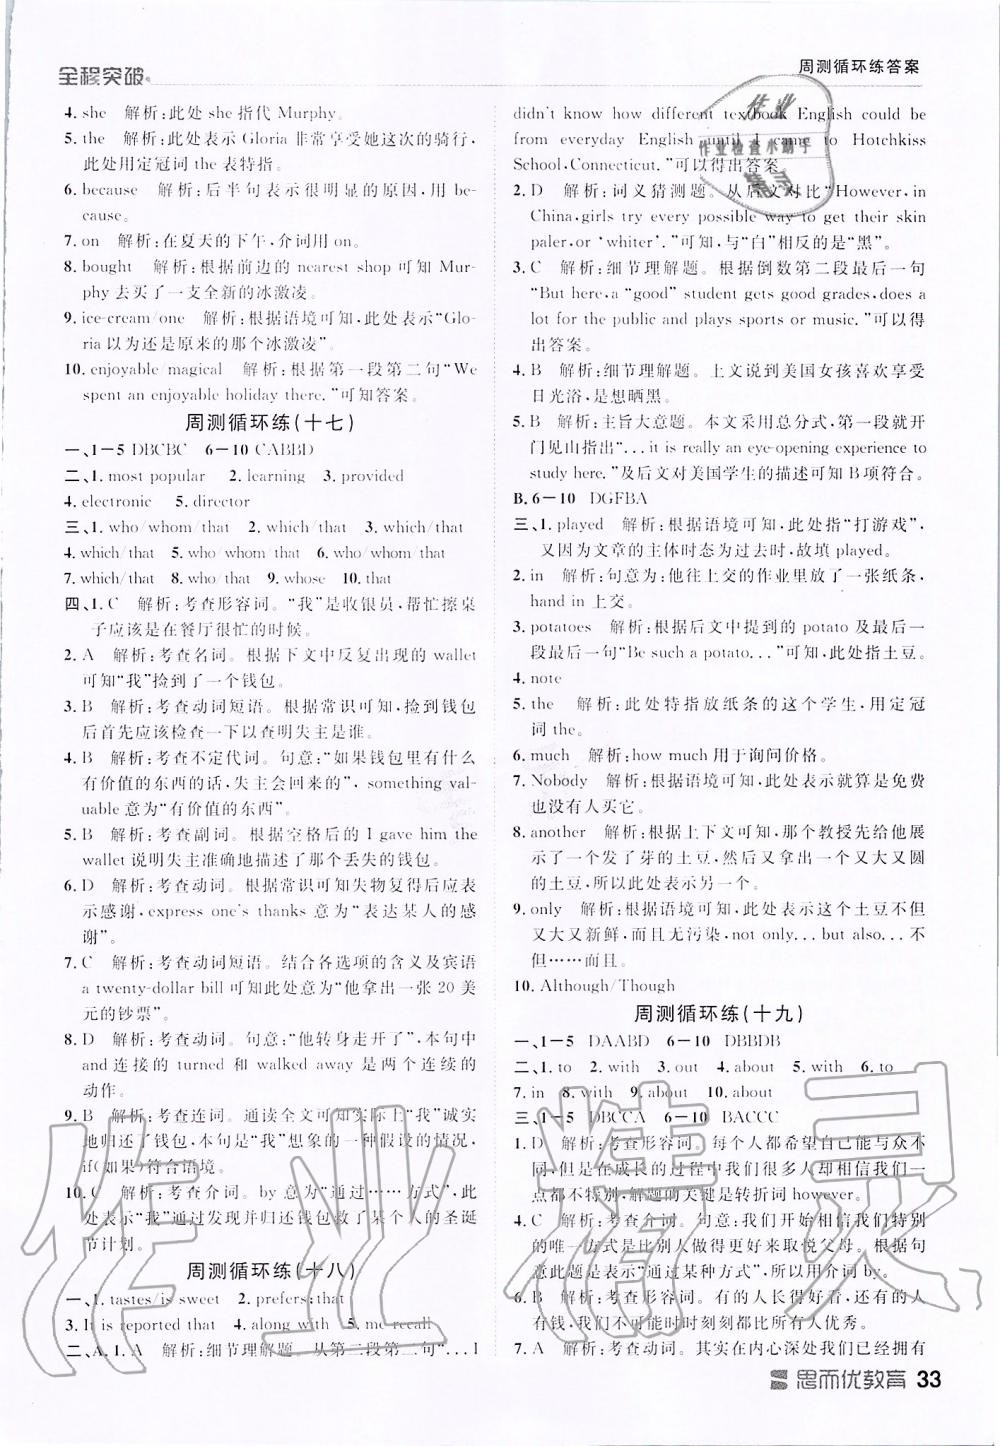 全程突破
周测循环练答案
4. she 解析:此处 she 指代 Murphy。
5. the 解析:此处表示 Gloria 非常享受她这次的骑行,
此处用定冠词 the 表特指。
6. because 解析:后半句表示很明显的原因,用 be-
cause。
7. on 解析:在夏天的下午,介词用 on。
8. bought 解析:根据前边的 nearest shop 可知 Mur-
phy 去买了一支全新的冰激凌。
9. ice-cream/one 解析:根据语境可知,此处表示“Glo-
ria 以为还是原来的那个冰激凌”。
10. enjoyable/magical 解析:根据第一段第二句“We
spent an enjoyable holiday there.”可知答案。
周测循环练(十七)
一、1-5 DBCBC 6-10 CABBD
二、1. most popular 2. learning 3. provided
4. electronic 5. director
三、1. who/whom/that 2. which/that 3. which/that
4. which/that 5. who/whom/that 6. who/whom/that
7. which/that 8. who/that 9. whose 10. that
四、1. C 解析:考查形容词。“我”是收银员,帮忙擦桌
子应该是在餐厅很忙的时候。
2. A 解析:考查名词。根据下文中反复出现的 wallet
可知“我”捡到了一个钱包。
3. B 解析:考查动词短语。根据常识可知,捡到钱包
后首先应该检查一下以查明失主是谁。
4. B 解析:考查不定代词。句意:“如果钱包里有什么
有价值的东西的话,失主会回来的”,something val-
uable 意为“有价值的东西”。
5. B 解析:考查副词。根据空格后的 I gave him the
wallet 说明失主准确地描述了那个丢失的钱包。
6. D 解析:考查动词。根据常识可知失物复得后应表
示感谢,express one's thanks 意为“表达某人的感
谢”。
7. C 解析:考查动词短语。结合各选项的含义及宾语
a twenty-dollar bill 可知此处意为“他拿出一张 20 美
元的钞票”。
8. D 解析:考查动词。句意:“他转身走开了”,本句中
and 连接的 turned 和 walked away 是两个连续的
动作。
9. B 解析:考查连词。通读全文可知实际上“我”诚实
地归还了钱包,本句是“我”想象的一种假设的情况,
if(如果)符合语境。
10. C 解析:考查介词。by 意为“通过……方式”,此
处表示“我”通过发现并归还钱包救了某个人的圣诞
节计划。
周测循环练(十八)
一、1. tastes/is sweet 2. prefers;that
3. It is reported that 4. along with 5. me recall
二、A. 1. A 解析:细节理解题。从第二段第二句“... I
didn't know how different textbook English could be
from everyday English until I came to Hotchkiss
School, Connecticut.”可以得出答案。
2. D 解析:词义猜测题。从后文对比“However, in
China, girls try every possible way to get their skin
paler, or ‘whiter’.”可知,与“白”相反的是“黑”。
3. C 解析:细节理解题。根据倒数第二段最后一句
“But here, a “good” student gets good grades, does a
lot for the public and plays sports or music.”可以得
出答案。
4. B 解析:细节理解题。上文说到美国女孩喜欢享受
日光浴,是想晒黑。
5. B 解析:主旨大意题。本文采用总分式,第一段就开
门见山指出“... it is really an eye-opening experience to
study here.”及后文对美国学生的描述可知 B 项符合。
B. 6-10 DGFBA
三、1. played 解析:根据语境可知,此处指“打游戏”,
又因为文章的主体时态为过去时,故填 played。
2. in 解析:句意为:他往上交的作业里放了一张纸条,
hand in 上交。
3. potatoes 解析:根据后文中提到的 potato 及最后一
段最后一句“Be such a potato...”可知,此处指土豆。
4. note
5. the 解析:此处特指放纸条的这个学生,用定冠
词 the。
6. much 解析:how much 用于询问价格。
7. Nobody 解析:根据语境可知,此处表示就算是免费
也没有人买它。
8. another 解析:根据上下文可知,那个教授先给他展
示了一个发了芽的土豆,然后又拿出一个又大又圆
的土豆,所以此处表示另一个。
9. only 解析:根据语境可知,此处表示这个土豆不但
又大又新鲜,而且无污染,not only... but also... 不
但……而且。
10. Although/Though
周测循环练(十九)
一、1-5 DAABD 6-10 DBBDB
二、1. to 2. with 3. out 4. about 5. with 6. to
7. in 8. with 9. about 10. about
三、1-5 DBCCA 6-10 BACCC
1. D 解析:考查形容词。每个人都希望自己能与众不
同,但是在成长的过程中我们很多人却相信我们一
点都不特别,解题的关键是转折词 however。
4. C 解析:考查介词。句意:我们开始相信我们特别
的唯一方式是比别人做得更好来取悦父母。根据句
意此题是表示“通过某种方式”,所以用介词 by。
6. B 解析:考查形容词。有的人长得好看,还有的人
有钱,我们不可能时时刻刻都比所有人优秀。
7. A 解析:考查动词。其实在内心深处我们已经拥有
作业
作业检查小助手
作业精灵
思而优教育 33